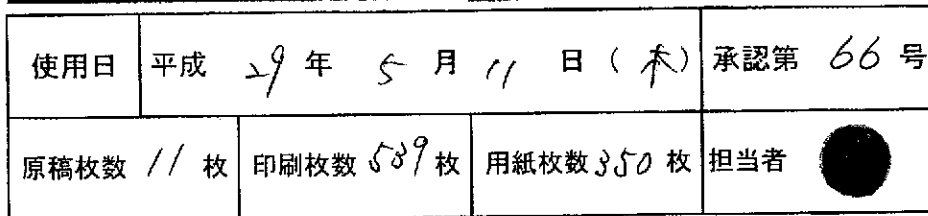 使用日 平成 29 年 5 月 11 日 ( 木 ) 承認第 66 号
原稿枚数 11 枚 印刷枚数 539 枚 用紙枚数 350 枚 担当者